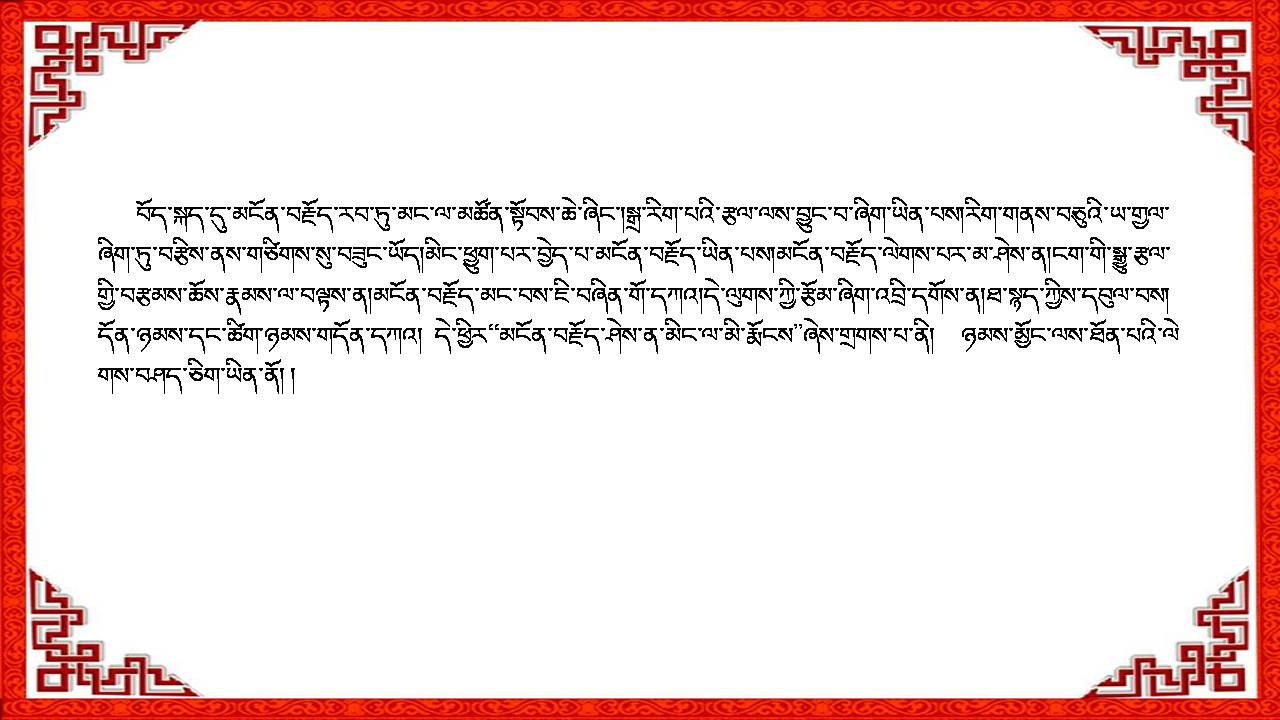 བོད་སྐད་དུ་མངོན་བརྗོད་རབ་ཏུ་མང་ལ་མཚོན་སྟོབས་ཆེ་ཞིང་།སྒྲ་རིག་པའི་རྩལ་ལས་བྱུང་བ་ཞིག་ཡིན་པས།རིག་གནས་བཅུའི་ཡ་གྱལ་
ཞིག་ཏུ་བརྩིས་ནས་གཙིགས་སུ་བཟུང་ཡོད།མིང་ཕྱུག་པར་བྱེད་པ་མངོན་བརྗོད་ཡིན་པས།མངོན་བརྗོད་ལེགས་པར་མ་ཤེས་ན།ངག་གི་སྒྱུ་རྩལ་
གྱི་བརྩམས་ཆོས་རྣམས་ལ་བལྟས་ན།མངོན་བརྗོད་མང་བས་ཇི་བཞིན་གོ་དཀའ།དེ་ལུགས་ཀྱི་རྩོམ་ཞིག་འབྲི་དགོས་ན།ཐ་སྙད་ཀྱིས་དབུལ་བས།
དོན་ཉམས་དང་ཚིག་ཉམས་གདོན་དཀའ། དེ་ཕྱིར“མངོན་བརྗོད་ཤེས་ན་མིང་ལ་མི་རྨོངས”ཞེས་གྲགས་པ་ནི། ཉམས་མྱོང་ལས་ཐོན་པའི་ལེ
གས་བཤད་ཅིག་ཡིན་ནོ། །